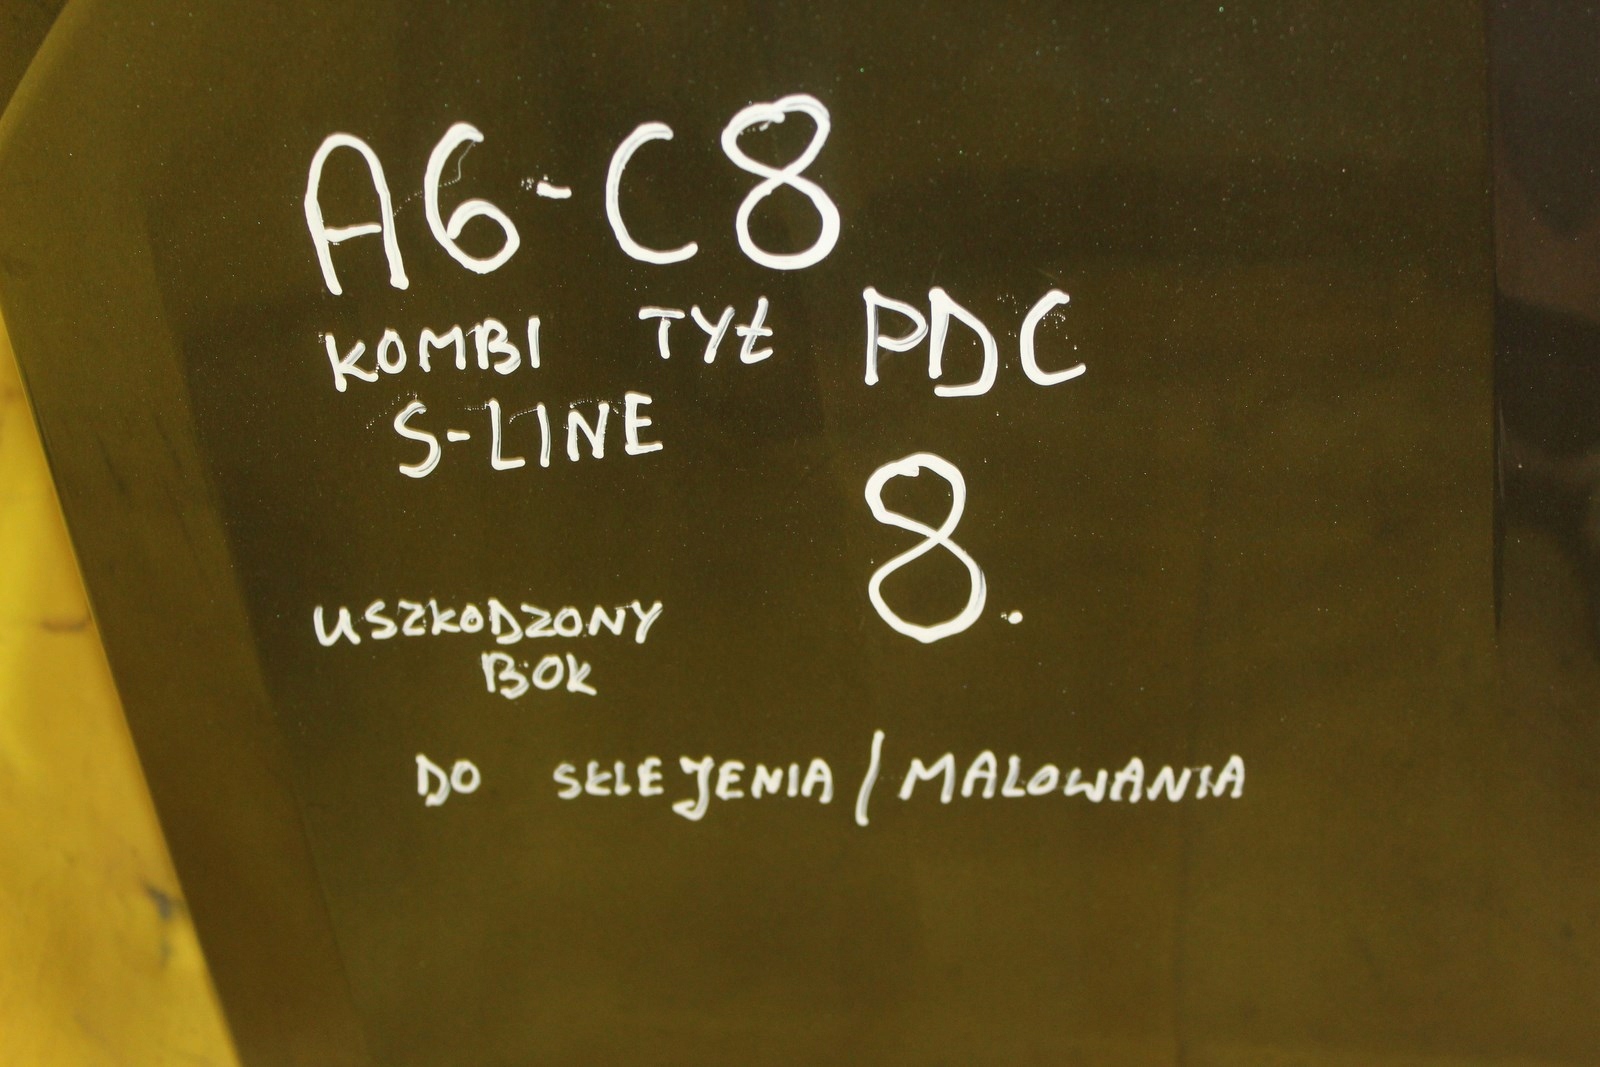 A6-C8
KOMBI TYŁ PDC
S-LINE
8.
USZKODZONY
BOK
DO SKLEJENIA/MALOWANIA